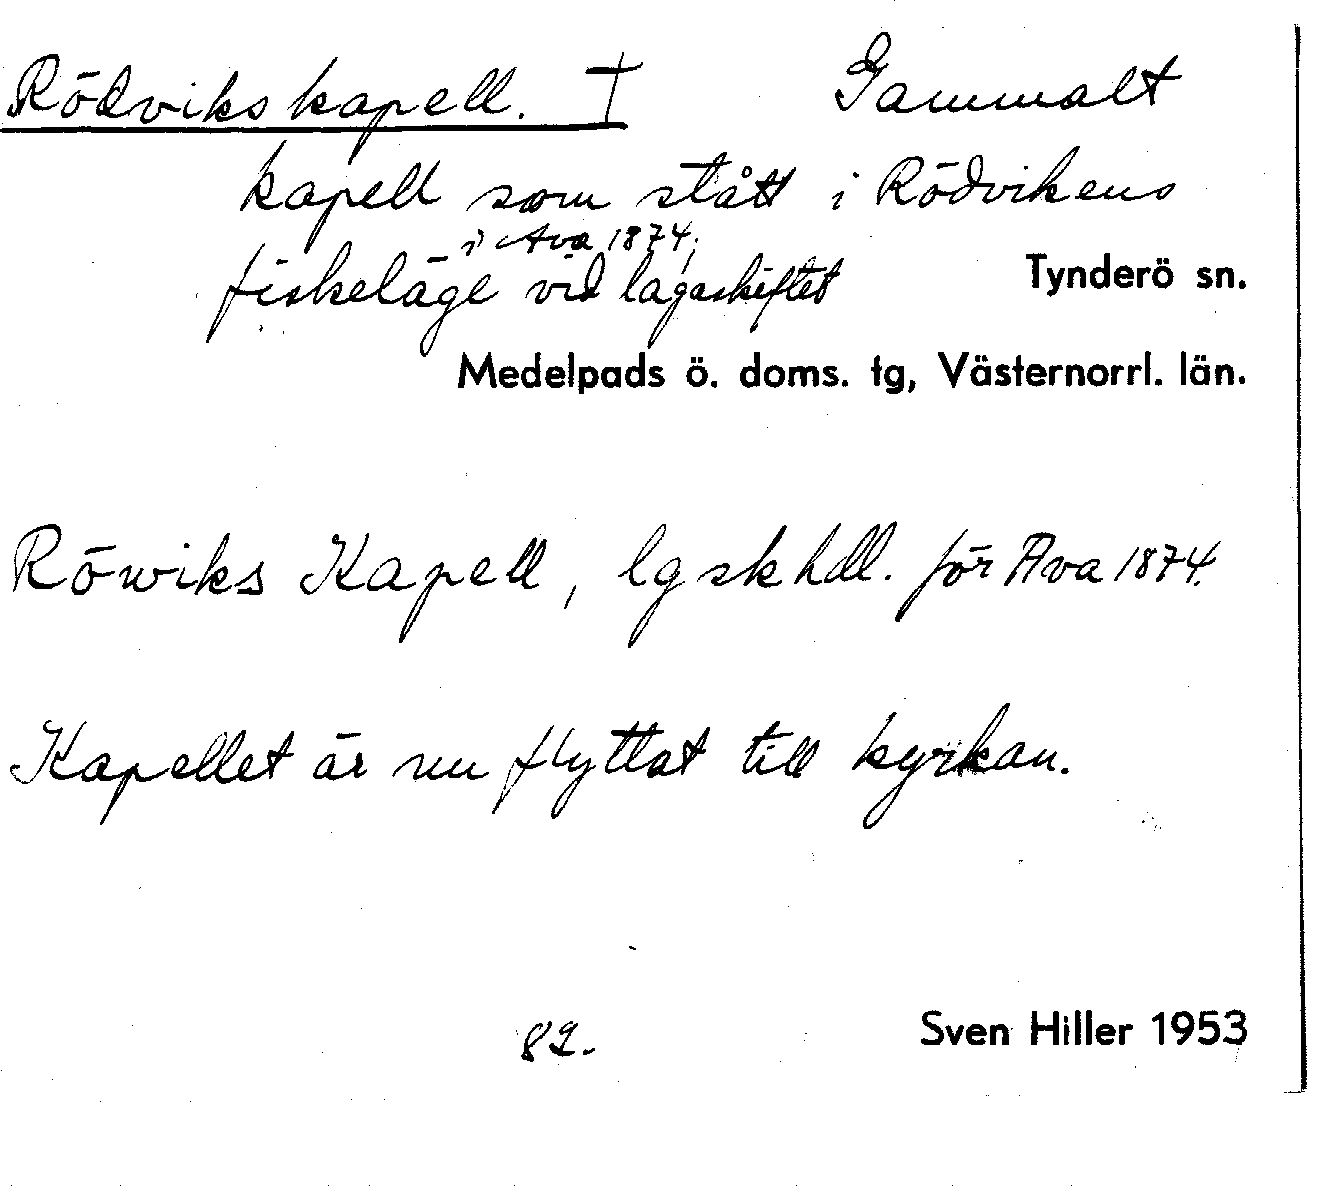 Rödvikskapell. † Gammalt
kapell som stått i Rödvikens
i Ava 1874.
fiskeläge vid lagaskiftet Tynderö sn.
Medelpads ö. doms. tg, Västernorrl. län.
Röwiks Kapell, lgskhdl. för Ava 1874.
Kapellet är nu flyttat till kyrkan.
82. Sven Hiller 1953